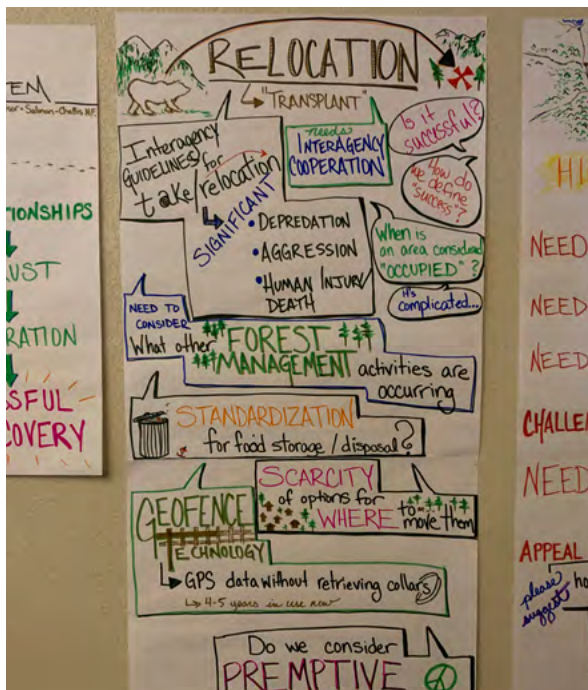 EM
Salmon-Challis N.F.
TIONSHIPS
UST
RATION
SSFUL
COVERY
RELOCATION
"TRANSPLANT"
Interagency
GUIDELINES for
take/relocation
SIGNIFICANT
• DEPREDATION
• AGGRESSION
• HUMAN INJURY/
DEATH
needs
INTERAGENCY
COOPERATION
Is it
successful?
How do
we define
"success"?
When is
an area considered
"OCCUPIED"?
it's
complicated...
NEED TO
CONSIDER
What other
FOREST
MANAGEMENT
activities are
occurring
STANDARDIZATION
for food storage/disposal?
SCARCITY
of options for
WHERE to move them
GEOFENCE
TECHNOLOGY
GPS data without retrieving collars
4-5 years in use now
Do we consider
PREMPTIVE
HI
NEED
NEED
NEED
CHALLEN
NEED
APPEAL
please
suggest
ho